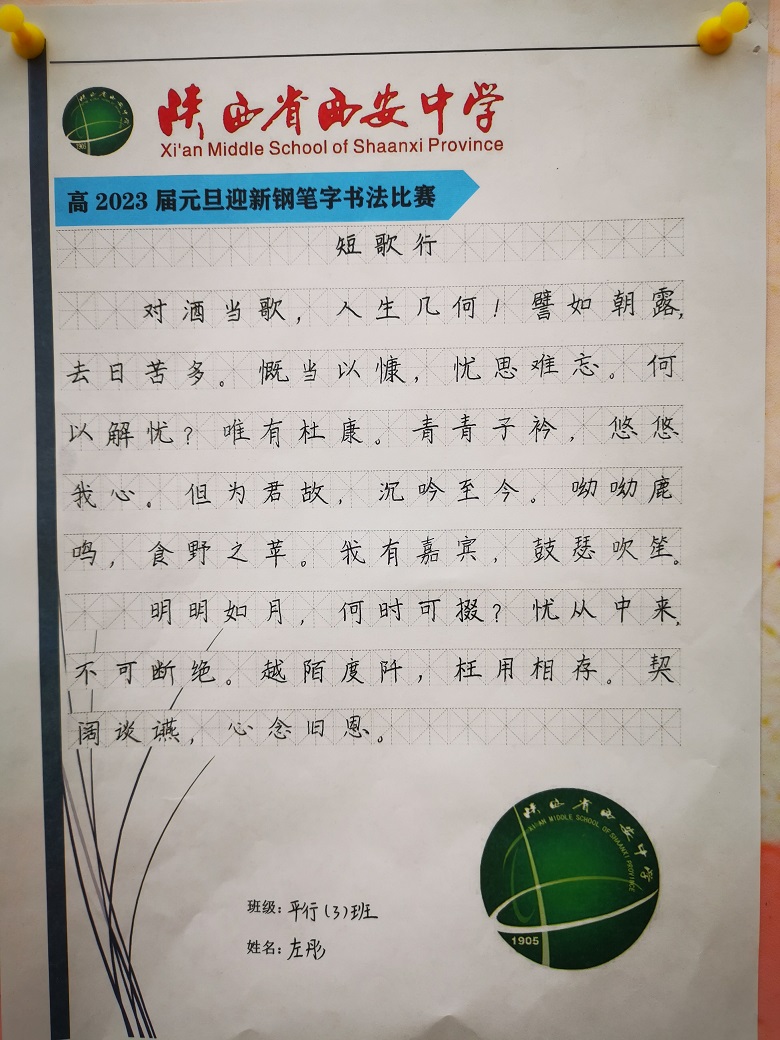 陕西省西安中学
Xi'an Middle School of Shaanxi Province
高2023届元旦迎新钢笔字书法比赛
短歌行
对酒当歌，人生几何！譬如朝露，
去日苦多。慨当以慷，忧思难忘。何
以解忧？唯有杜康。青青子衿，悠悠
我心。但为君故，沉吟至今。呦呦鹿
鸣，食野之苹。我有嘉宾，鼓瑟吹笙。
明明如月，何时可掇？忧从中来，
不可断绝。越陌度阡，枉用相存。契
阔谈讌，心念旧恩。
陕西省西安中学
XI'AN MIDDLE SCHOOL OF SHAANXI PROVINCE
1905
班级：平行(3)班
姓名：左彤